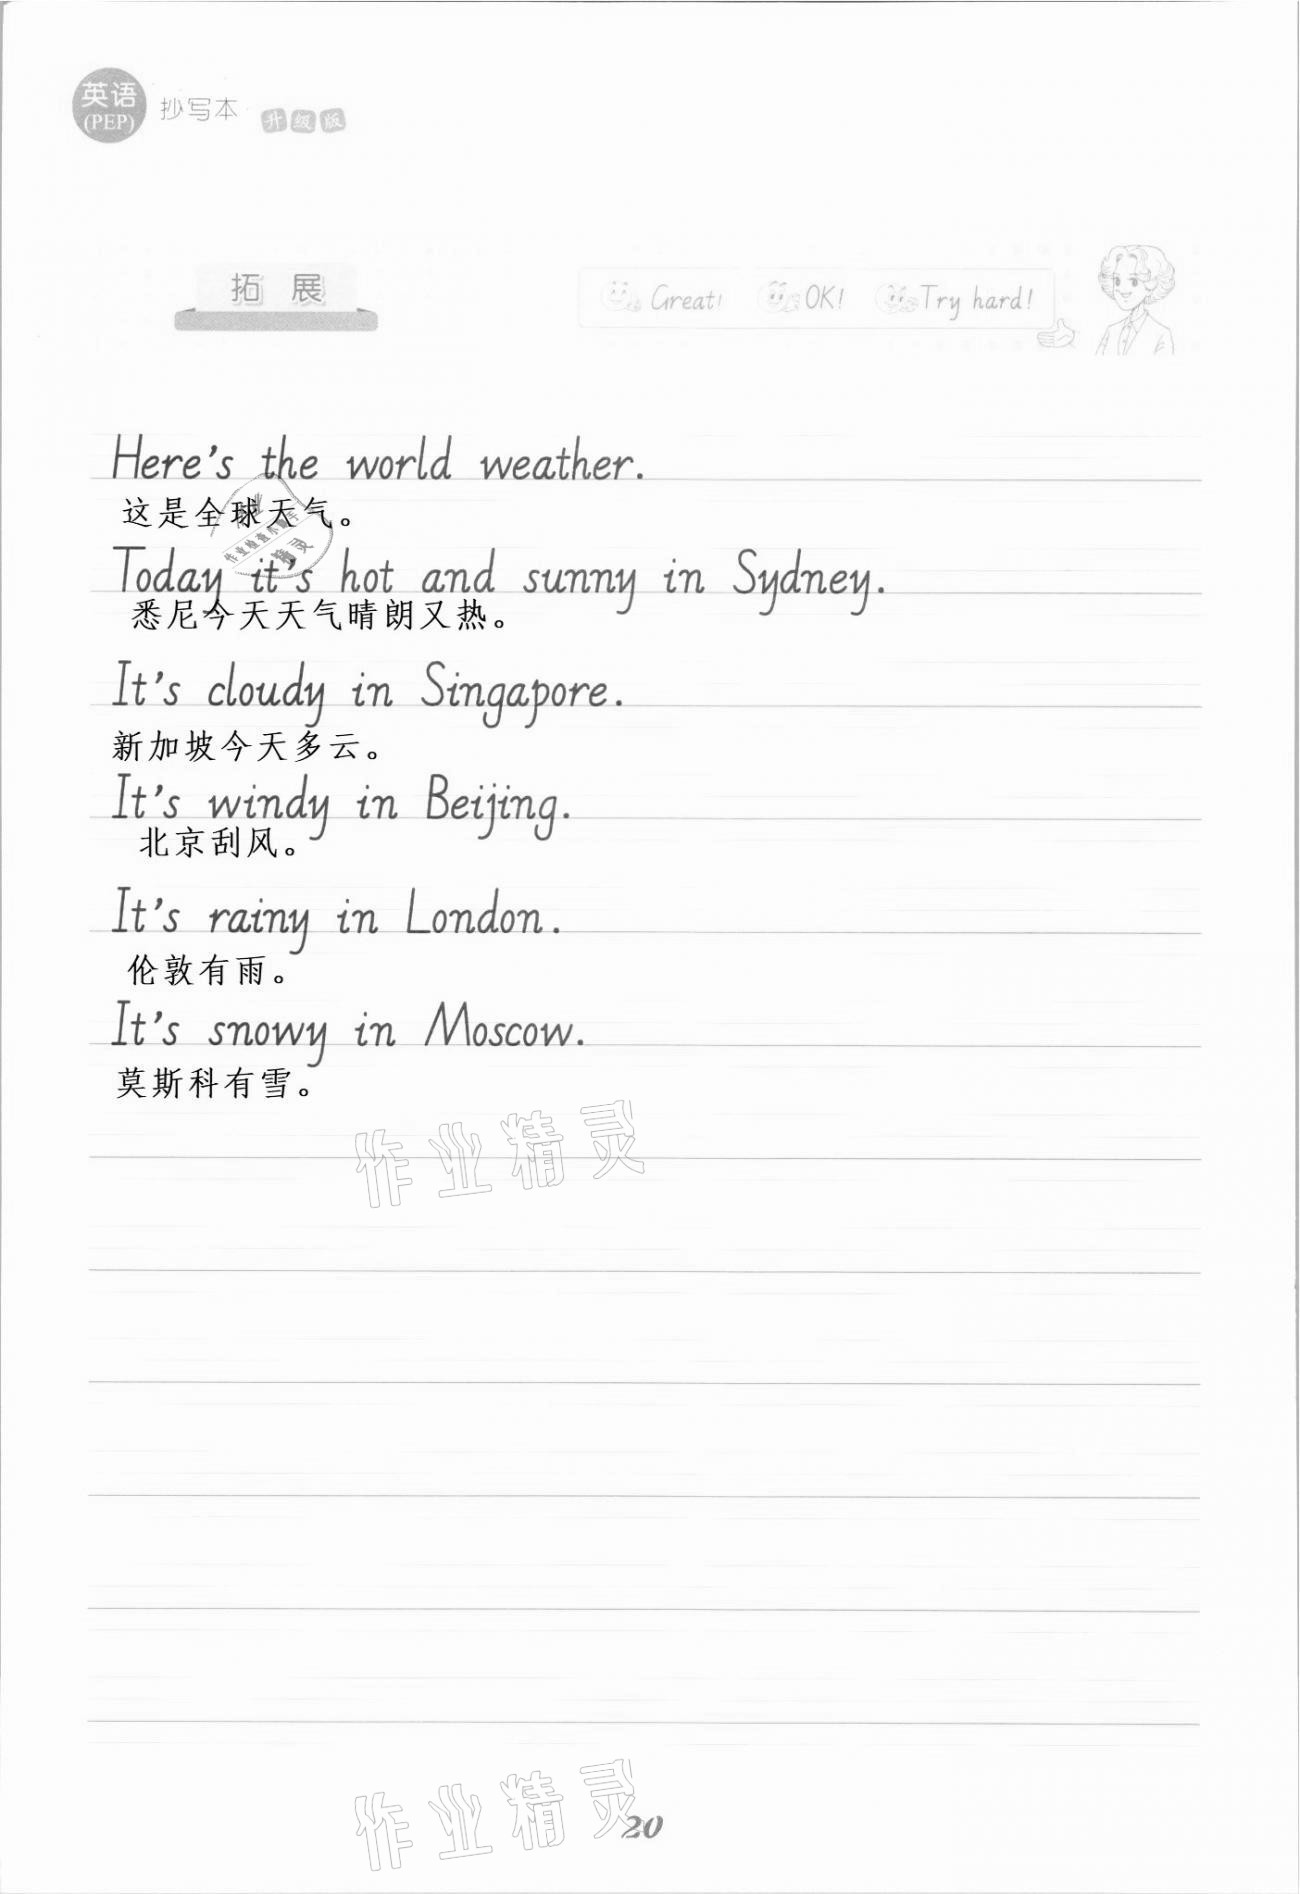 英语
(PEP)
抄写本 升级版
拓展
Great! OK! Try hard!
Here's the world weather.
这是全球天气。
Today it's hot and sunny in Sydney.
悉尼今天天气晴朗又热。
It's cloudy in Singapore.
新加坡今天多云。
It's windy in Beijing.
北京刮风。
It's rainy in London.
伦敦有雨。
It's snowy in Moscow.
莫斯科有雪。
作业精灵
作业精灵
20